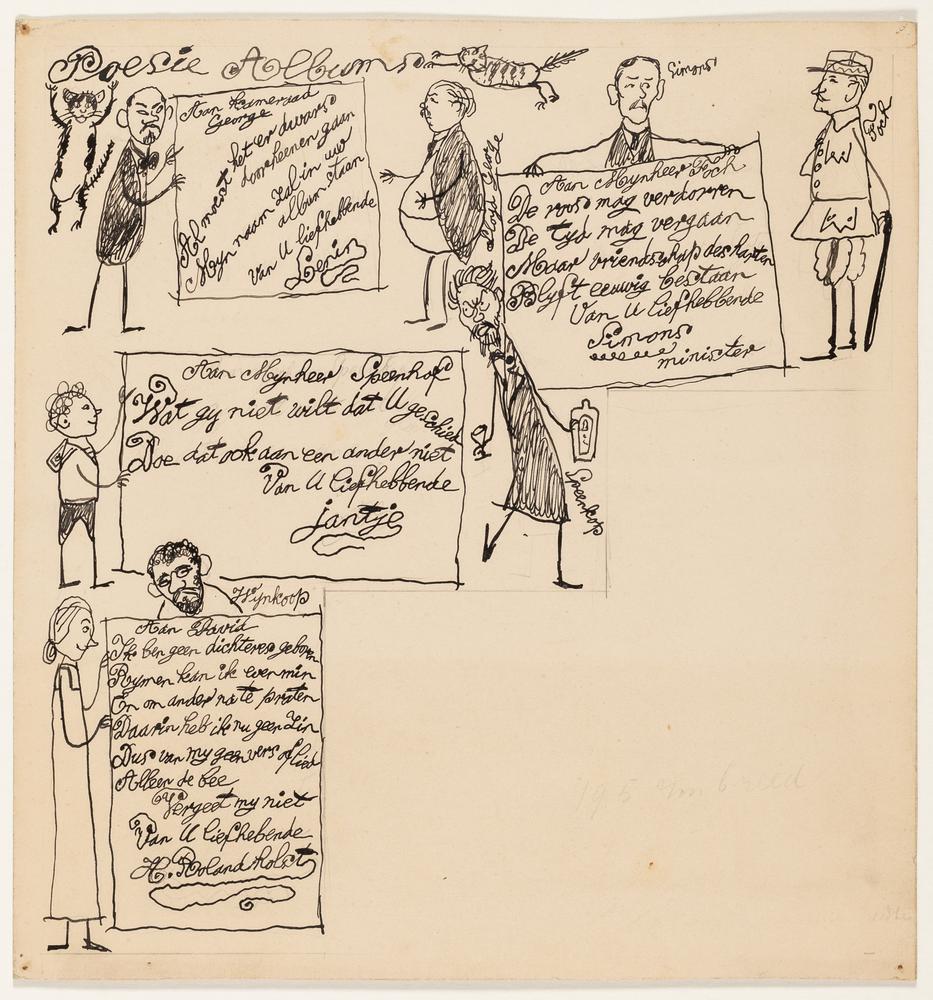 Poesie Albums
Aan Kameraad
George
Al moest het er dwars
doorheenen gaan
Myn naam zal in uw
album staan
Van U liefhebbende
Lenin
Lloyd George
Simons
Foch
Aan Mynheer Foch
De roos mag verdorren
De tyd mag vergaan
Maar vriendschap des harten
Blyft eeuwig bestaan
Van U liefhebbende
Simons
minister
Aan Mynheer Speenhof
Wat gy niet wilt dat U geschied
Doe dat ook aan een ander niet
Van U liefhebbende
jantje
Speenhof
Wynkoop
Aan David
Ik ben geen dichteres geboren
Rymen kan ik evenmin
En om ander na te praten
Daarin heb ik nu geen zin
Dus van my geen vers of lied
Alleen de bee
Vergeet my niet
Van U liefhebende
H. Roland holst